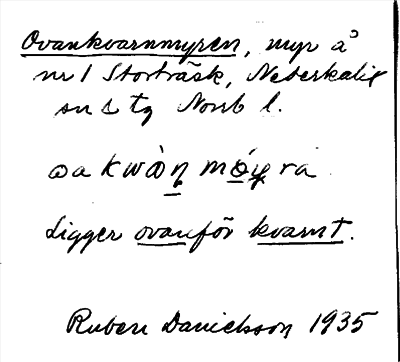 Ovankvarnmyren, myr å
nr 1 Storträsk, Nederkalix
sn o tg Norrb l.
Ligger ovanför kvarnt.
Ruben Danielsson 1935